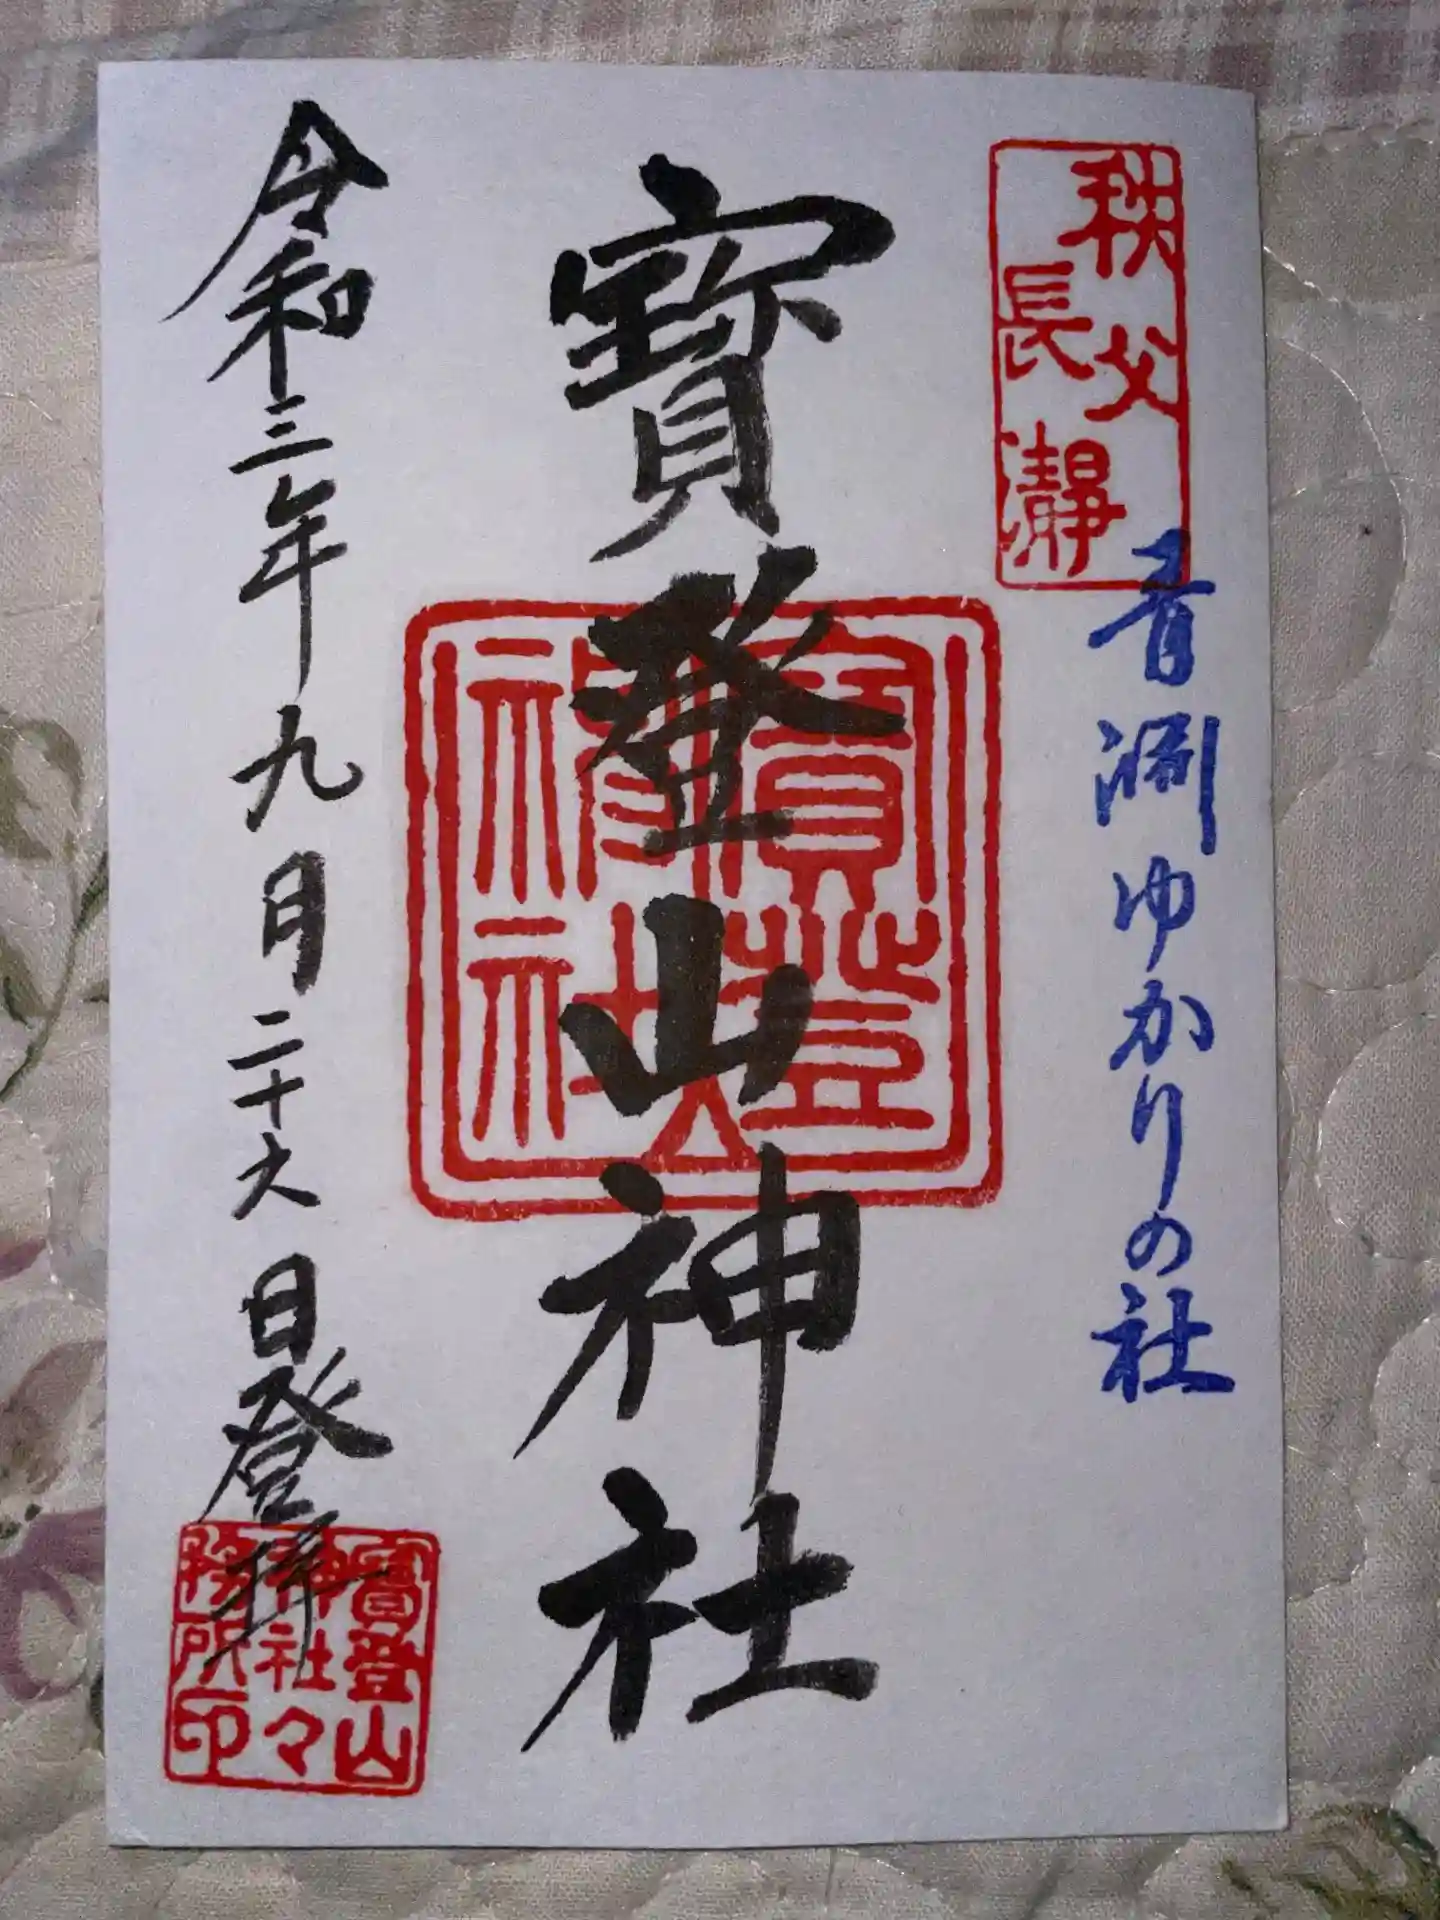 秩父
長瀞
青淵ゆかりの社
寳登山神社
寳登山
神社
令和三年九月二十六日登拝
寳登山
神社々
務所印